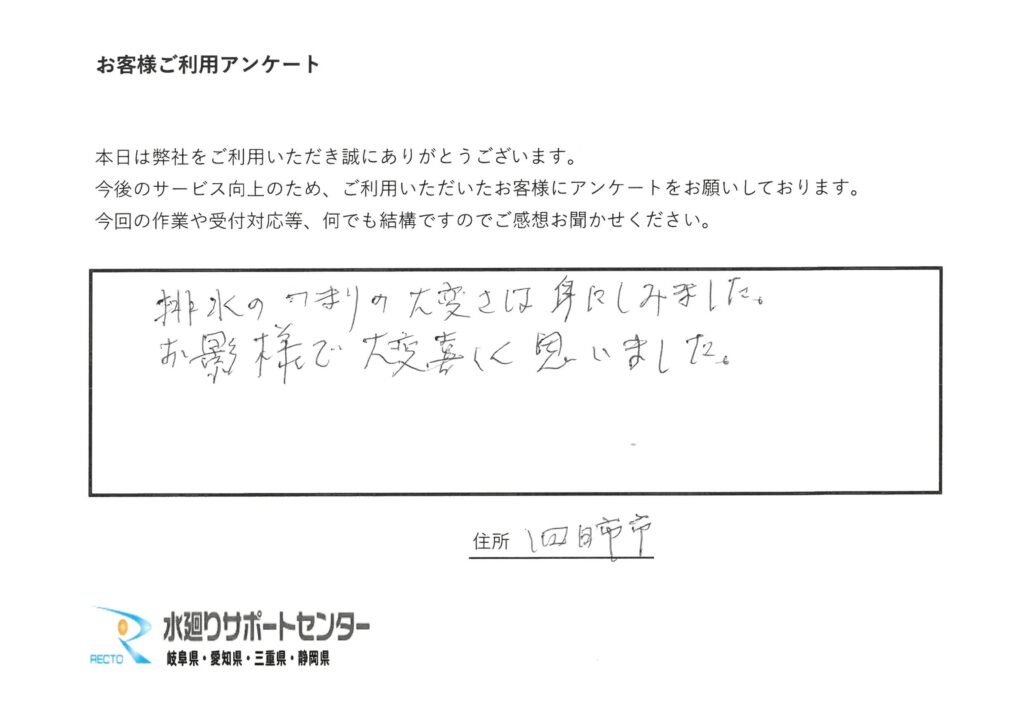 お客様ご利用アンケート
本日は弊社をご利用いただき誠にありがとうございます。
今後のサービス向上のため、ご利用いただいたお客様にアンケートをお願いしております。
今回の作業や受付対応等、何でも結構ですのでご感想お聞かせください。
排水のつまりの大変さは身にしみました。
お影様で大変喜しく思いました。
住所 四日市市
RECTO 水廻りサポートセンター
岐阜県・愛知県・三重県・静岡県